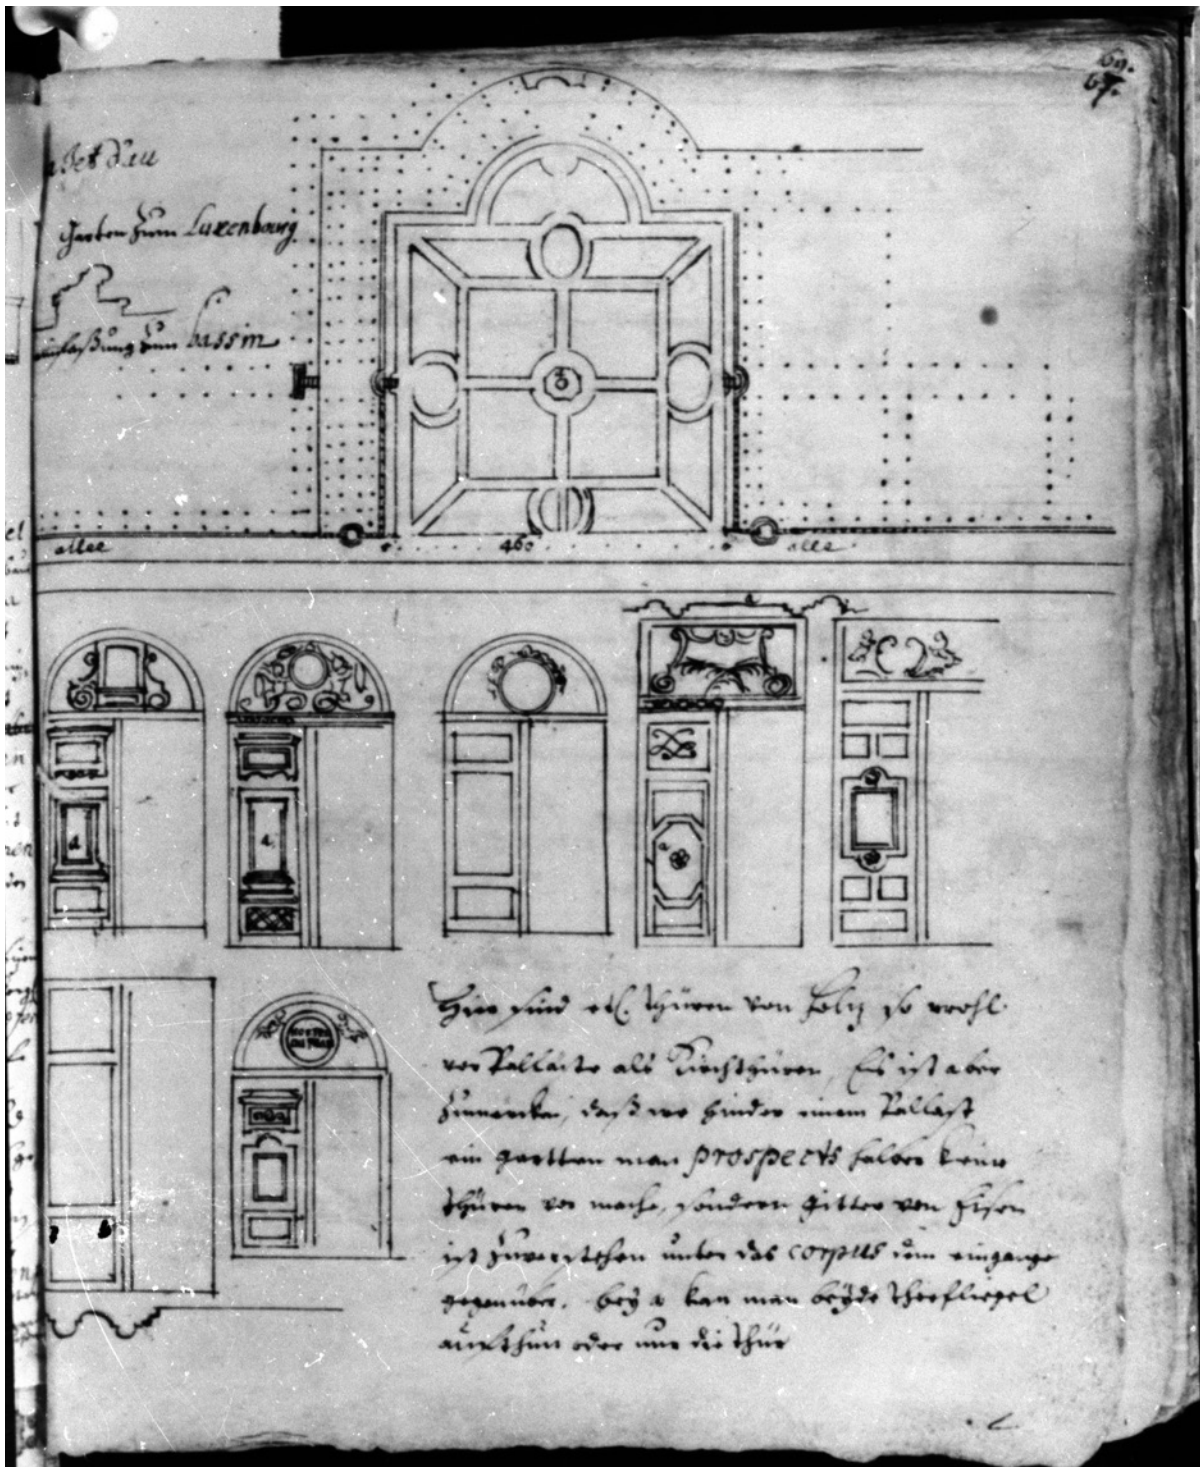 69.
67.
Jet d'au
Garten zum Luxenbourg
einfaßung zum bassin
3
allee
460
alle
a
a.
Hier sind etl. thüren von Holtz so wohl
vor Palläste als Kirchthüren, Es ist aber
zumercken, daß wo hinder einem Pallast
ein gartten man prospects halber keine
thüren vor mache, sondern gitter von Eisen
ist zuverstehen unter das corpus dem eingange
gegenüber. bey a kan man beyde thorfliegel
auffthun oder nur die thür